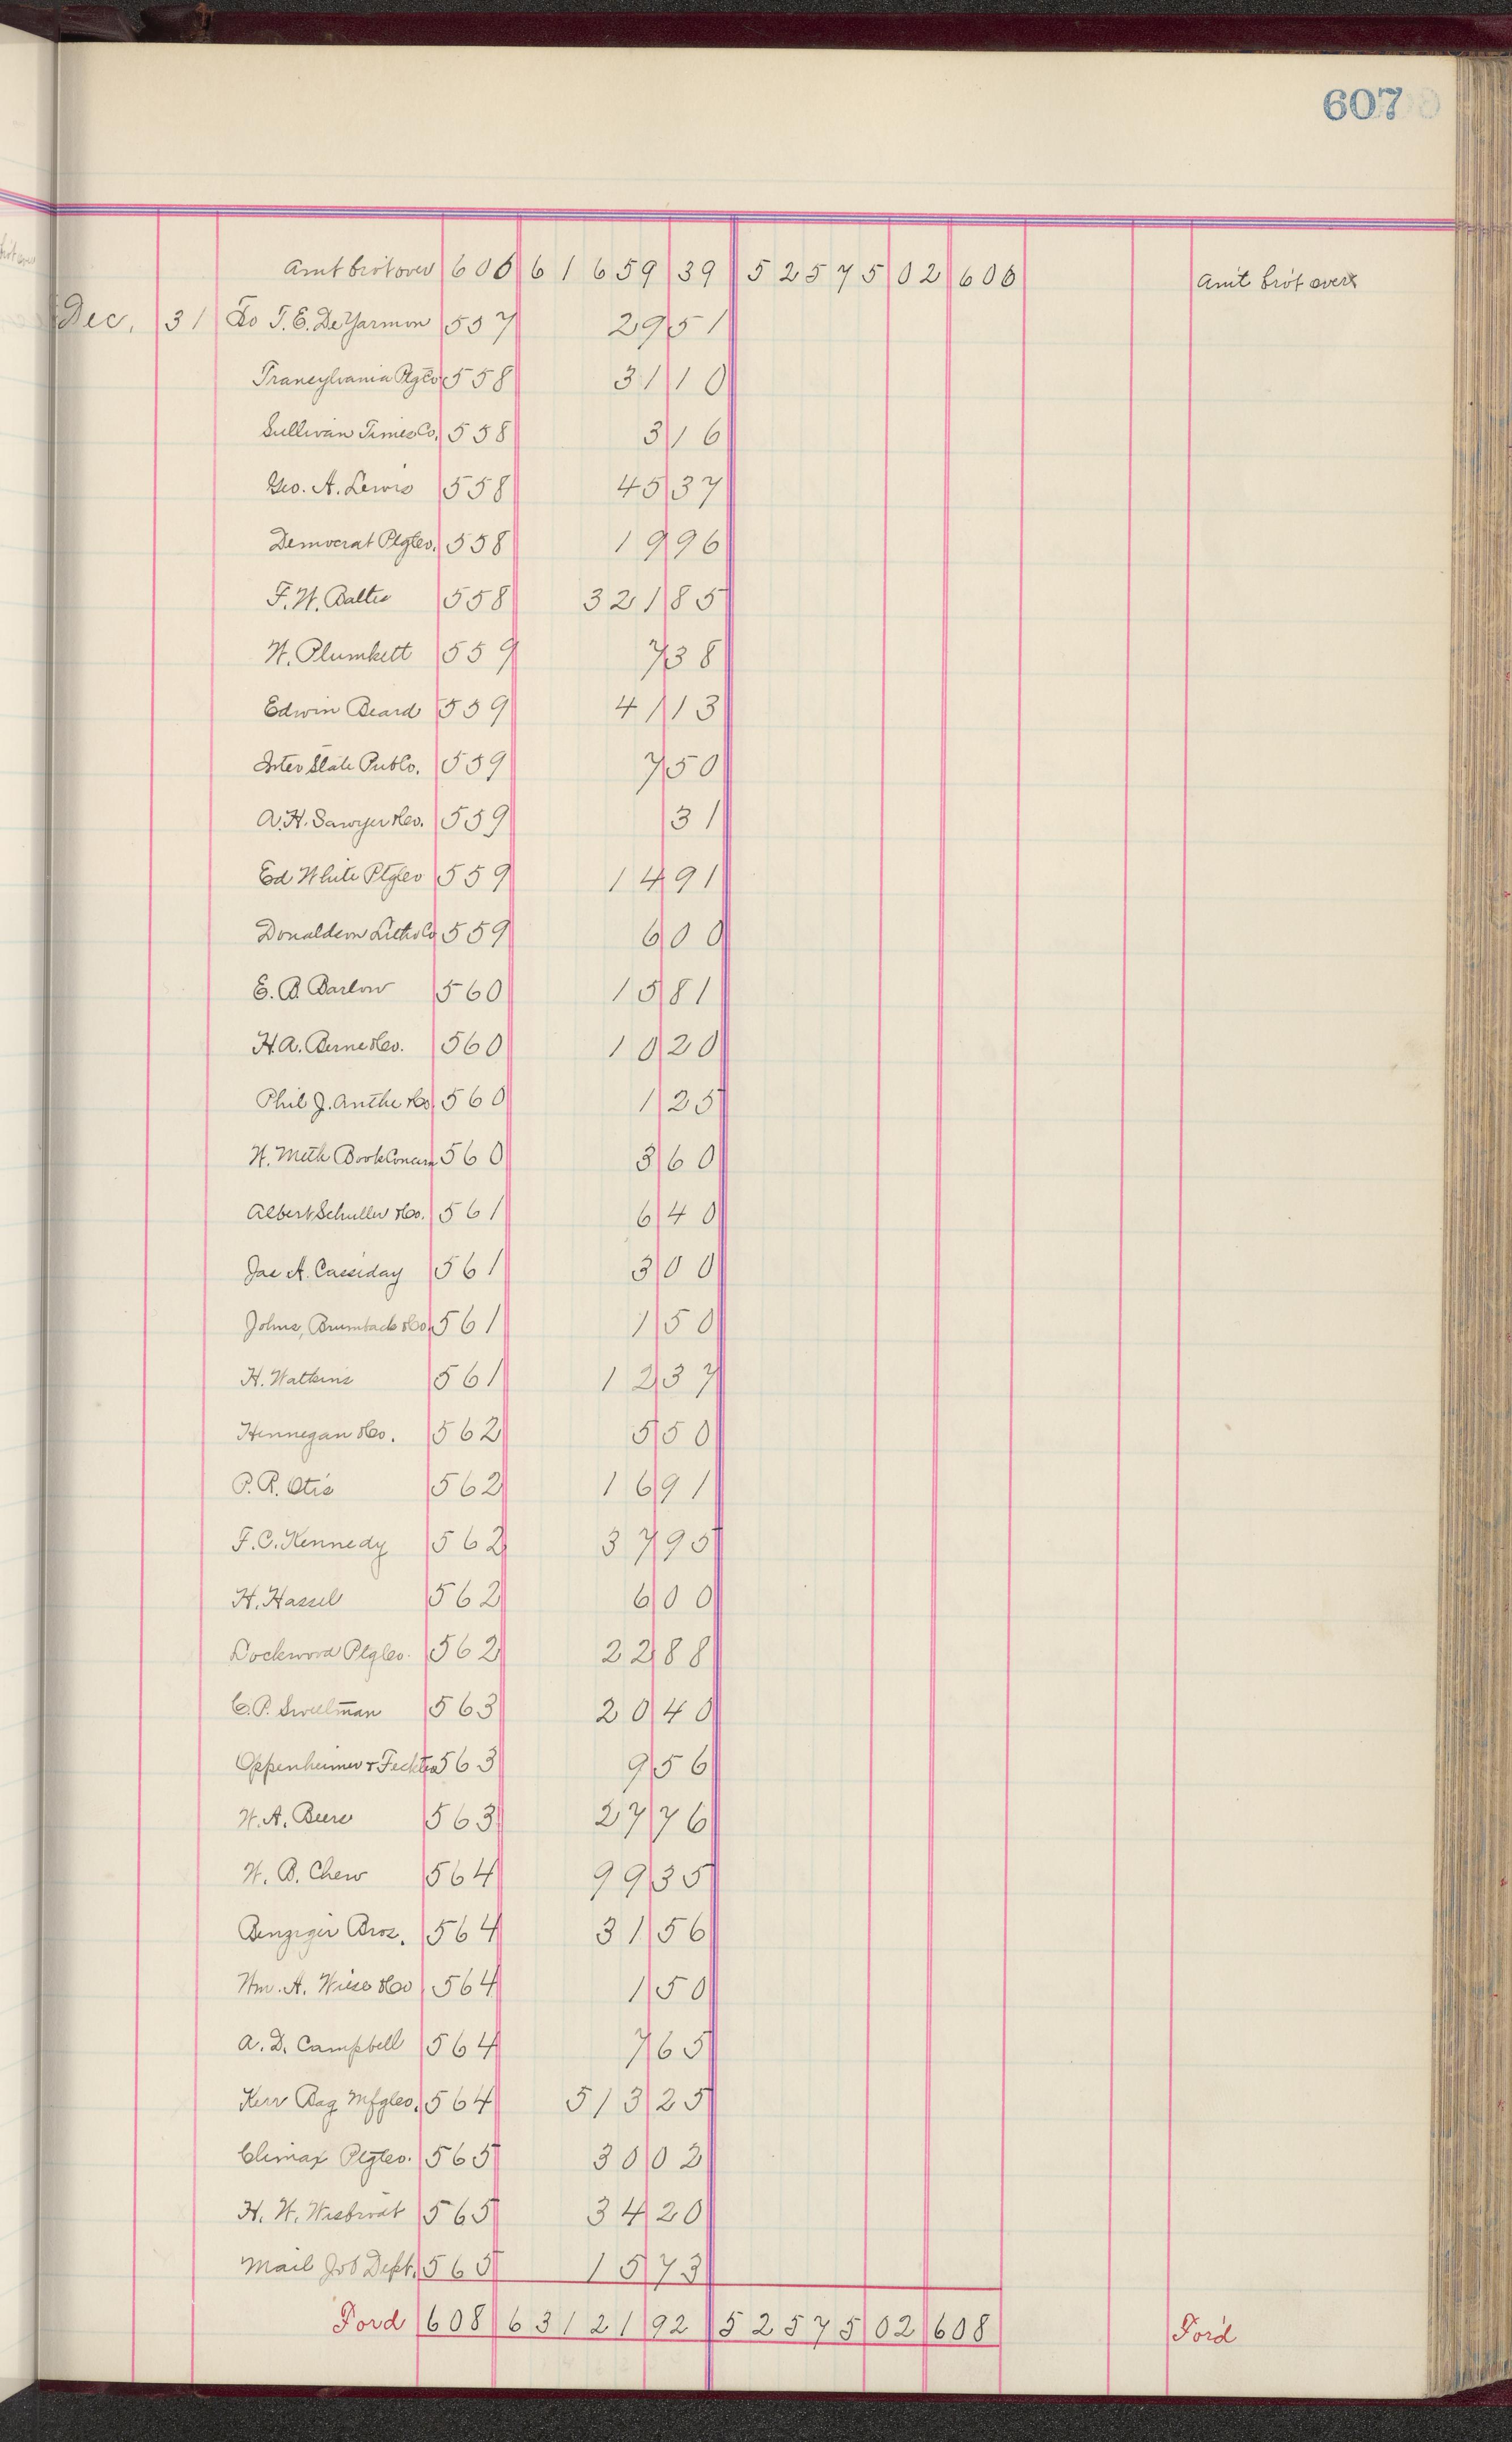 607
Amt brot over 606 61659 39 52575 02 606 Amt brot over
Dec. 31 To T. E. DeYarmon 557 29 51
Transylvania Ptg Co 558 31 10
Sullivan Times Co. 558 3 16
Geo. A. Lewis 558 45 37
Democrat Ptg Co. 558 19 96
F. W. Baltes 558 321 85
W. Plumkett 559 7 38
Edwin Beard 559 41 13
Inter State Pub Co. 559 7 50
A. H. Sawyer & Co. 559 31
Ed White Ptg Co 559 14 91
Donaldson Litho Co 559 6 00
E. B. Barlow 560 15 81
H. A. Berne & Co. 560 10 20
Phil J. Anthe & Co. 560 1 25
W. Meth Book Concern 560 3 60
Albert Schuller & Co. 561 6 40
Jas A. Cassiday 561 3 00
Johns, Brumback & Co. 561 1 50
H. Watkins 561 12 37
Hennegan & Co. 562 5 50
P. R. Otis 562 16 91
F. C. Kennedy 562 37 95
H. Hassel 562 6 00
Lockwood Ptg Co. 562 22 88
C. P. 563 20 40
Oppenheimer & 563 9 56
W. A. Beere 563 27 76
W. B. Chew 564 99 35
Benziger Bros. 564 31 56
Wm. A. Wiese & Co 564 1 50
A. D. Campbell 564 7 65
Kerr Bag Mfg Co. 564 513 25
Climax Ptg Co. 565 30 02
H. W. Weisbrodt 565 34 20
Mail Job Dept. 565 15 73
Ford 608 63121 92 52575 02 608 Ford